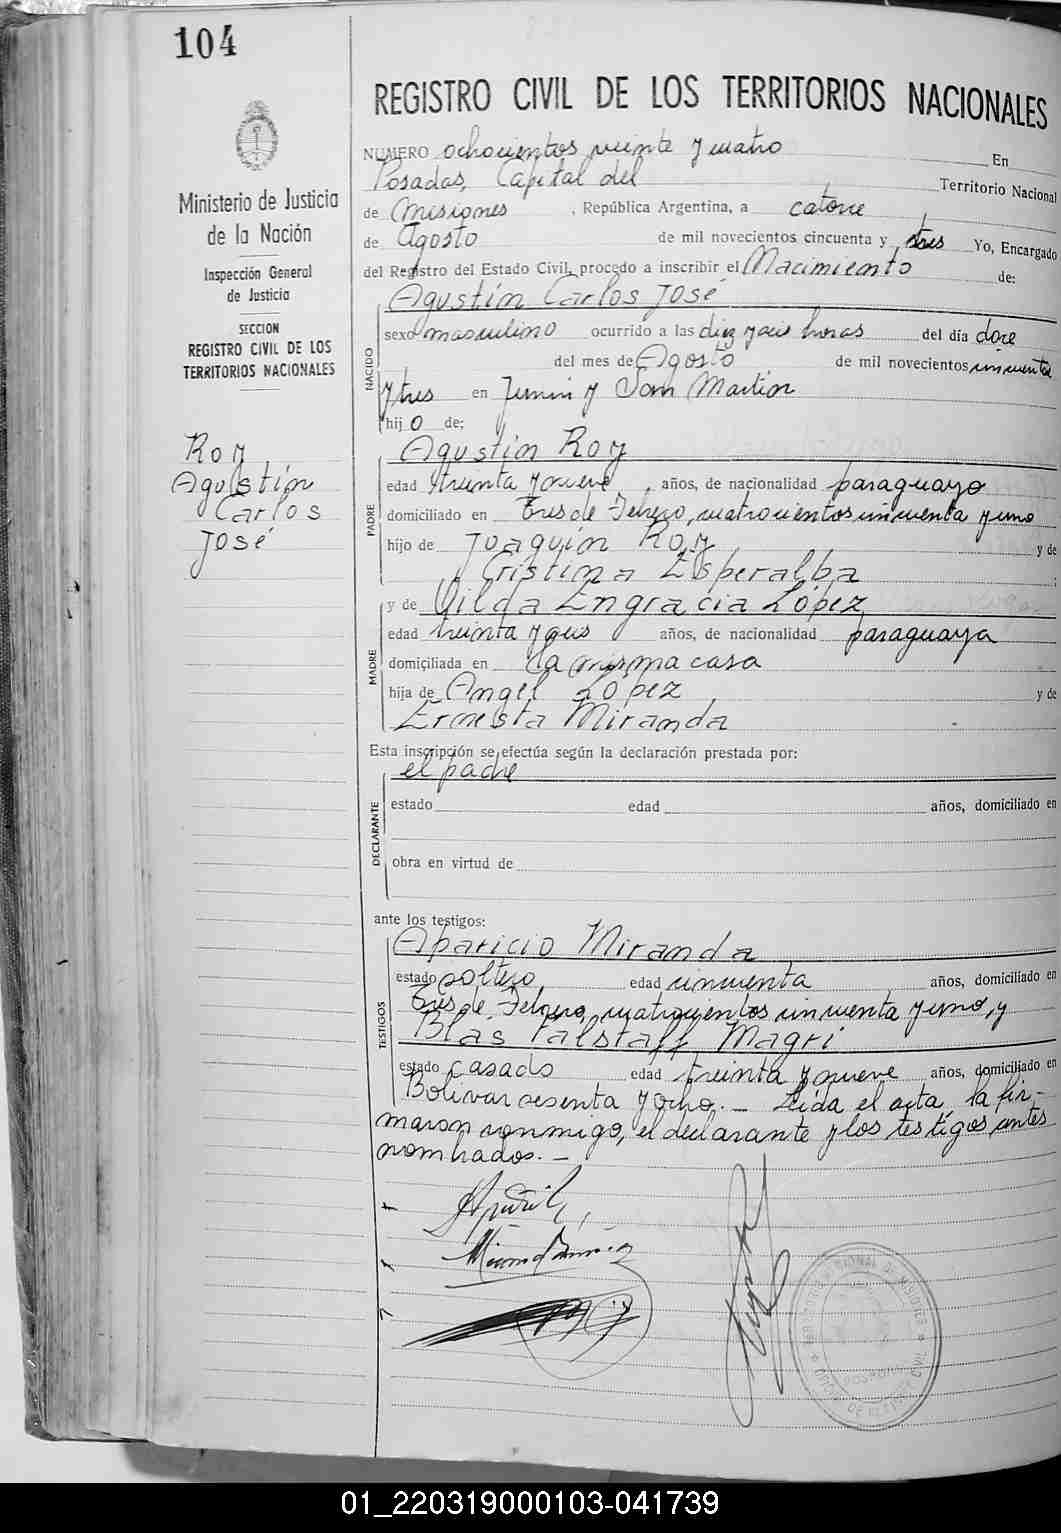 104
Ministerio de Justicia
de la Nación
Inspección General
de Justicia
SECCION
REGISTRO CIVIL DE LOS
TERRITORIOS NACIONALES
Roy
Agustín
Carlos
José
REGISTRO CIVIL DE LOS TERRITORIOS NACIONALES
NUMERO ochocientos veinte y cuatro En
Posadas, Capital del Territorio Nacional
de Misiones , República Argentina, a catorce
de Agosto de mil novecientos cincuenta y tres Yo, Encargado
del Registro del Estado Civil, procedo a inscribir el Nacimiento de:
NACIDO
Agustín Carlos José
sexo masculino ocurrido a las diez y seis horas del día doce
del mes de Agosto de mil novecientos cincuenta
y tres en Junin y San Martin
hij o de:
PADRE
Agustin Roy
edad treinta y nueve años, de nacionalidad paraguayo
domiciliado en Tres de Febrero, cuatrocientos cincuenta y uno
hijo de Joaquin Roy y de
Cristina Esperalba
MADRE
y de Vilda Engracia López
edad treinta y seis años, de nacionalidad paraguaya
domiciliada en la misma casa
hija de Angel López y de
Ernesta Miranda
Esta inscripción se efectúa según la declaración prestada por:
DECLARANTE
el padre
estado edad años, domiciliado en
obra en virtud de
ante los testigos:
TESTIGOS
Aparicio Miranda
estado soltero edad cincuenta años, domiciliado en
Tres de Febrero, cuatrocientos cincuenta y uno, y
Blas Falstaff Magri
estado casado edad treinta y nueve años, domiciliado en
Bolívar sesenta y ocho. — Leida el acta, la fir-
maron conmigo, el declarante y los testigos antes
nombrados. —
01_220319000103-041739